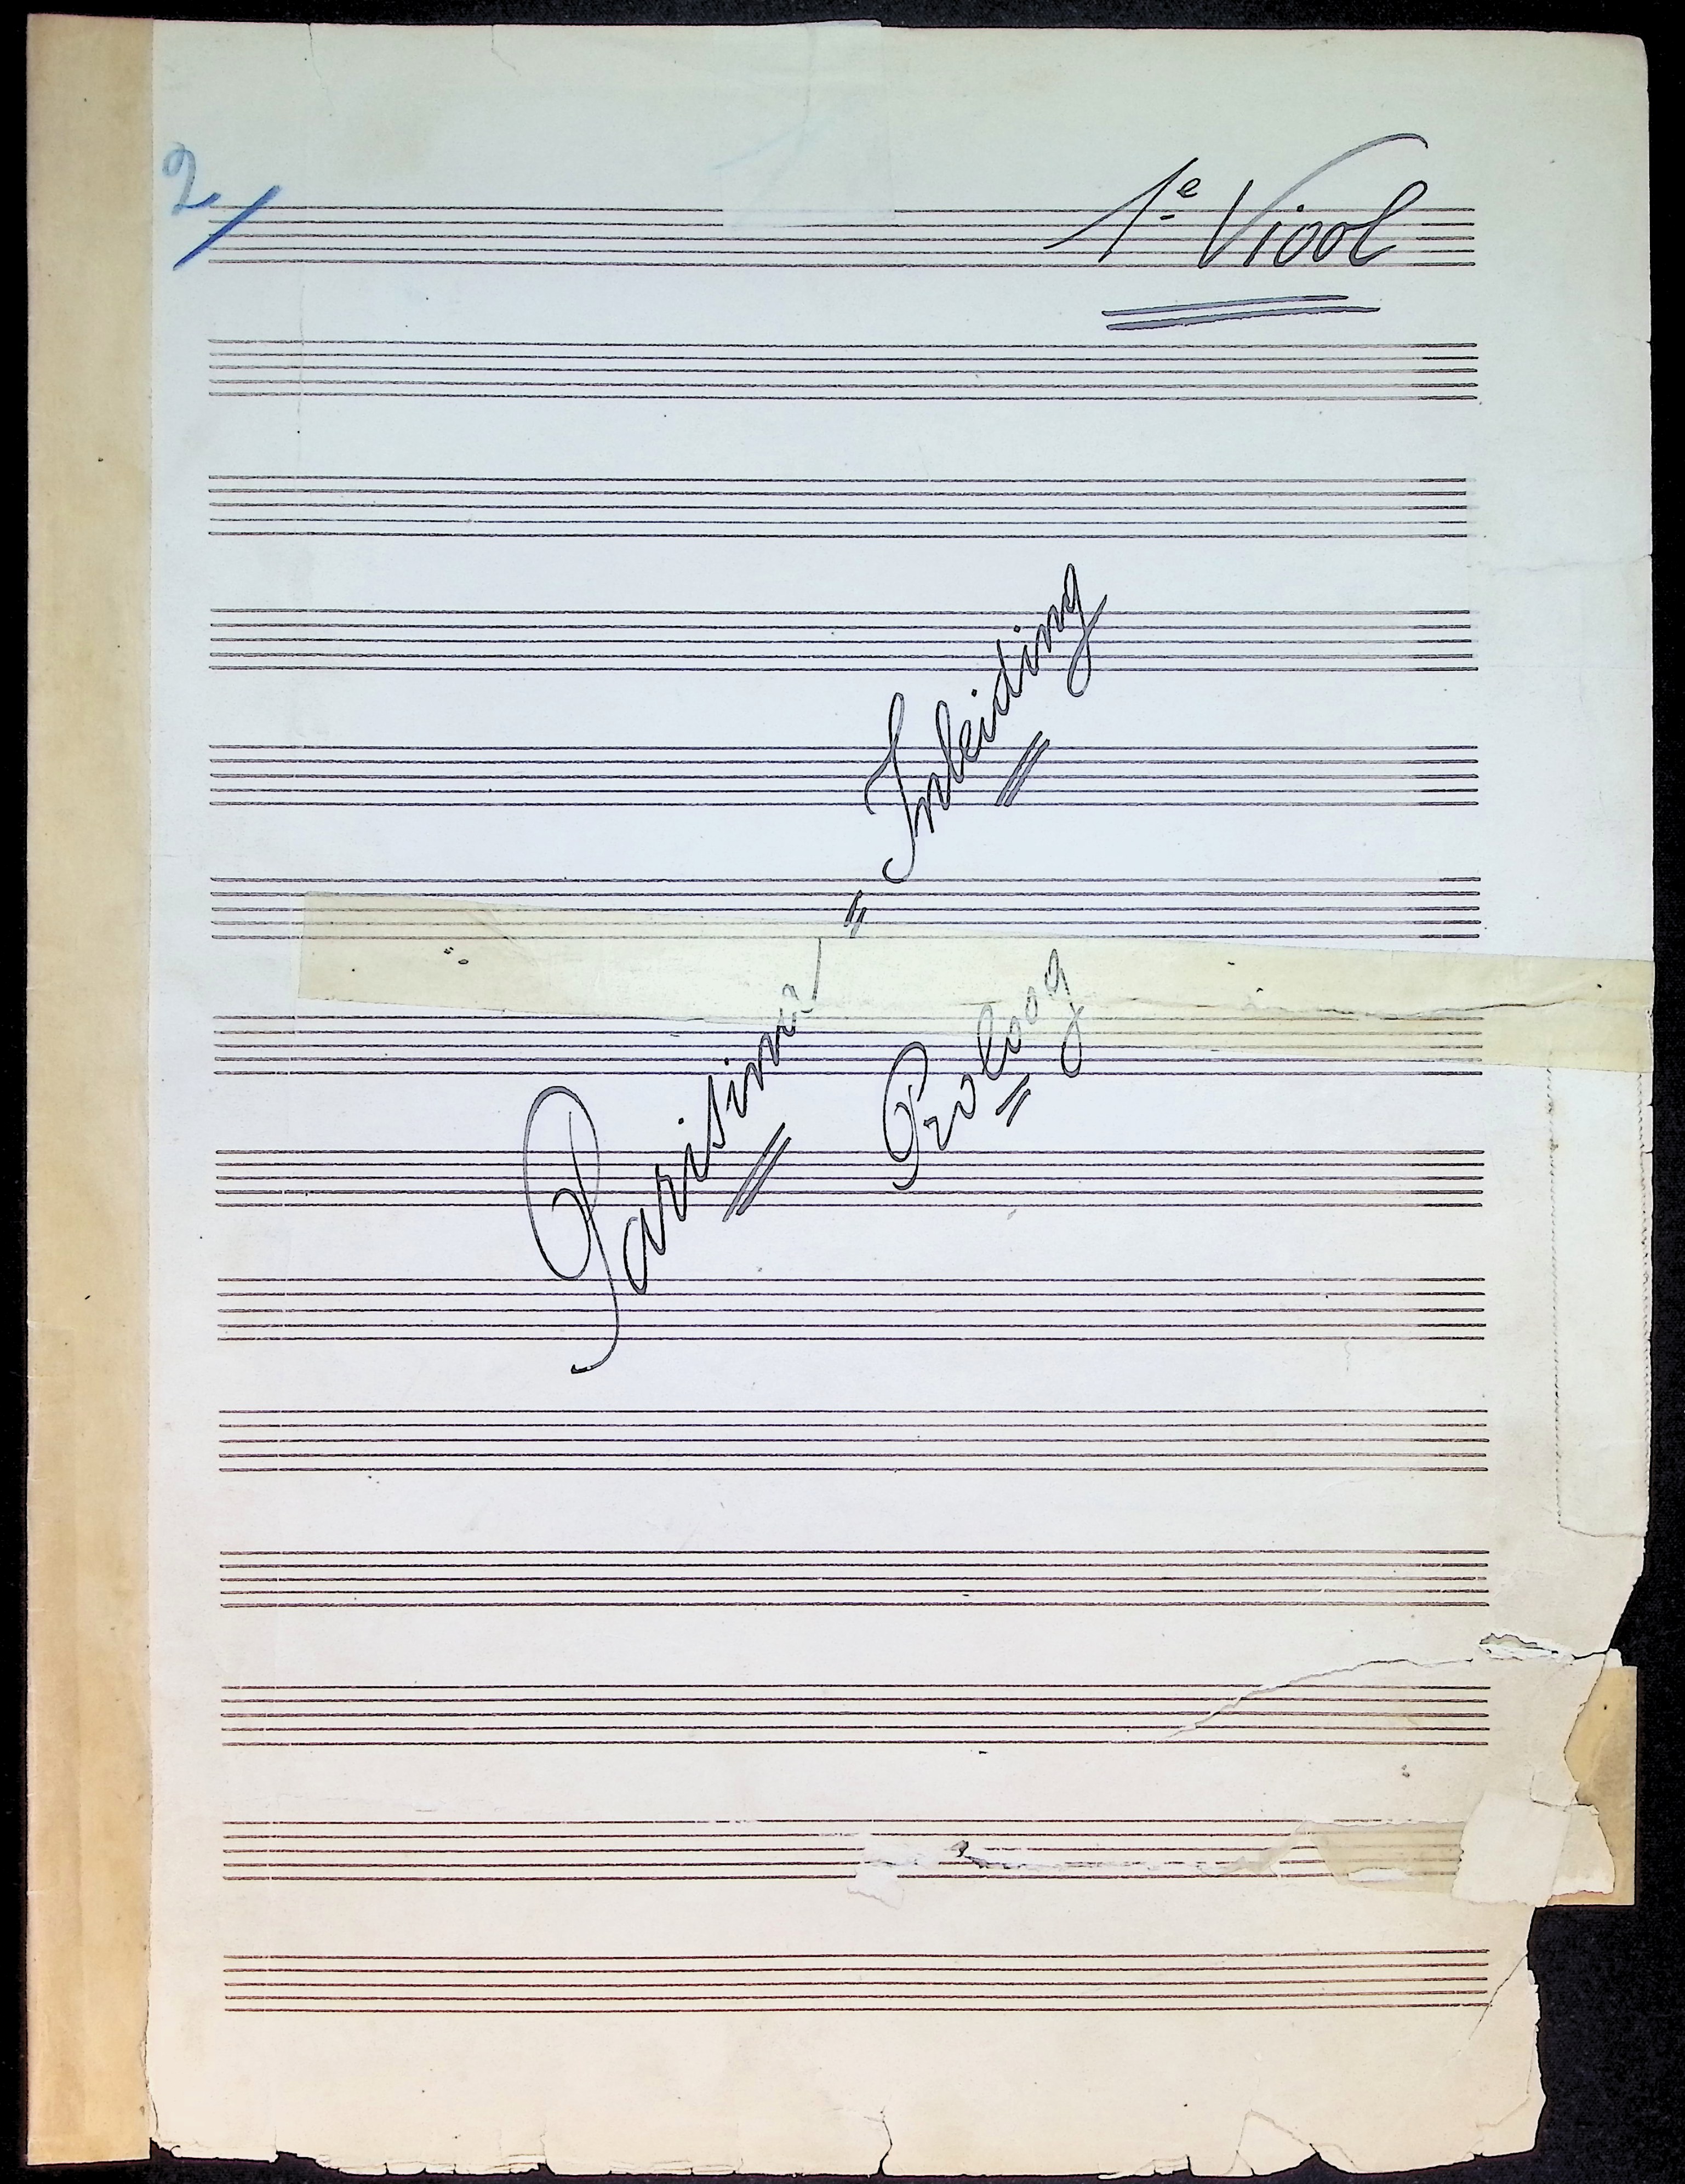 2/
1e Viool
Parisina = Inleiding
Proloog